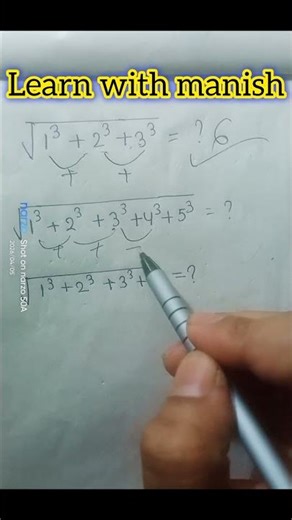 Learn with manish
√1³ + 2³ + 3³ = ? 6
+ +
√1³ + 2³ + 3³ + 4³ + 5³ = ?
+ +
√1³ + 2³ + 3³ + = ?
Shot on narzo 50A